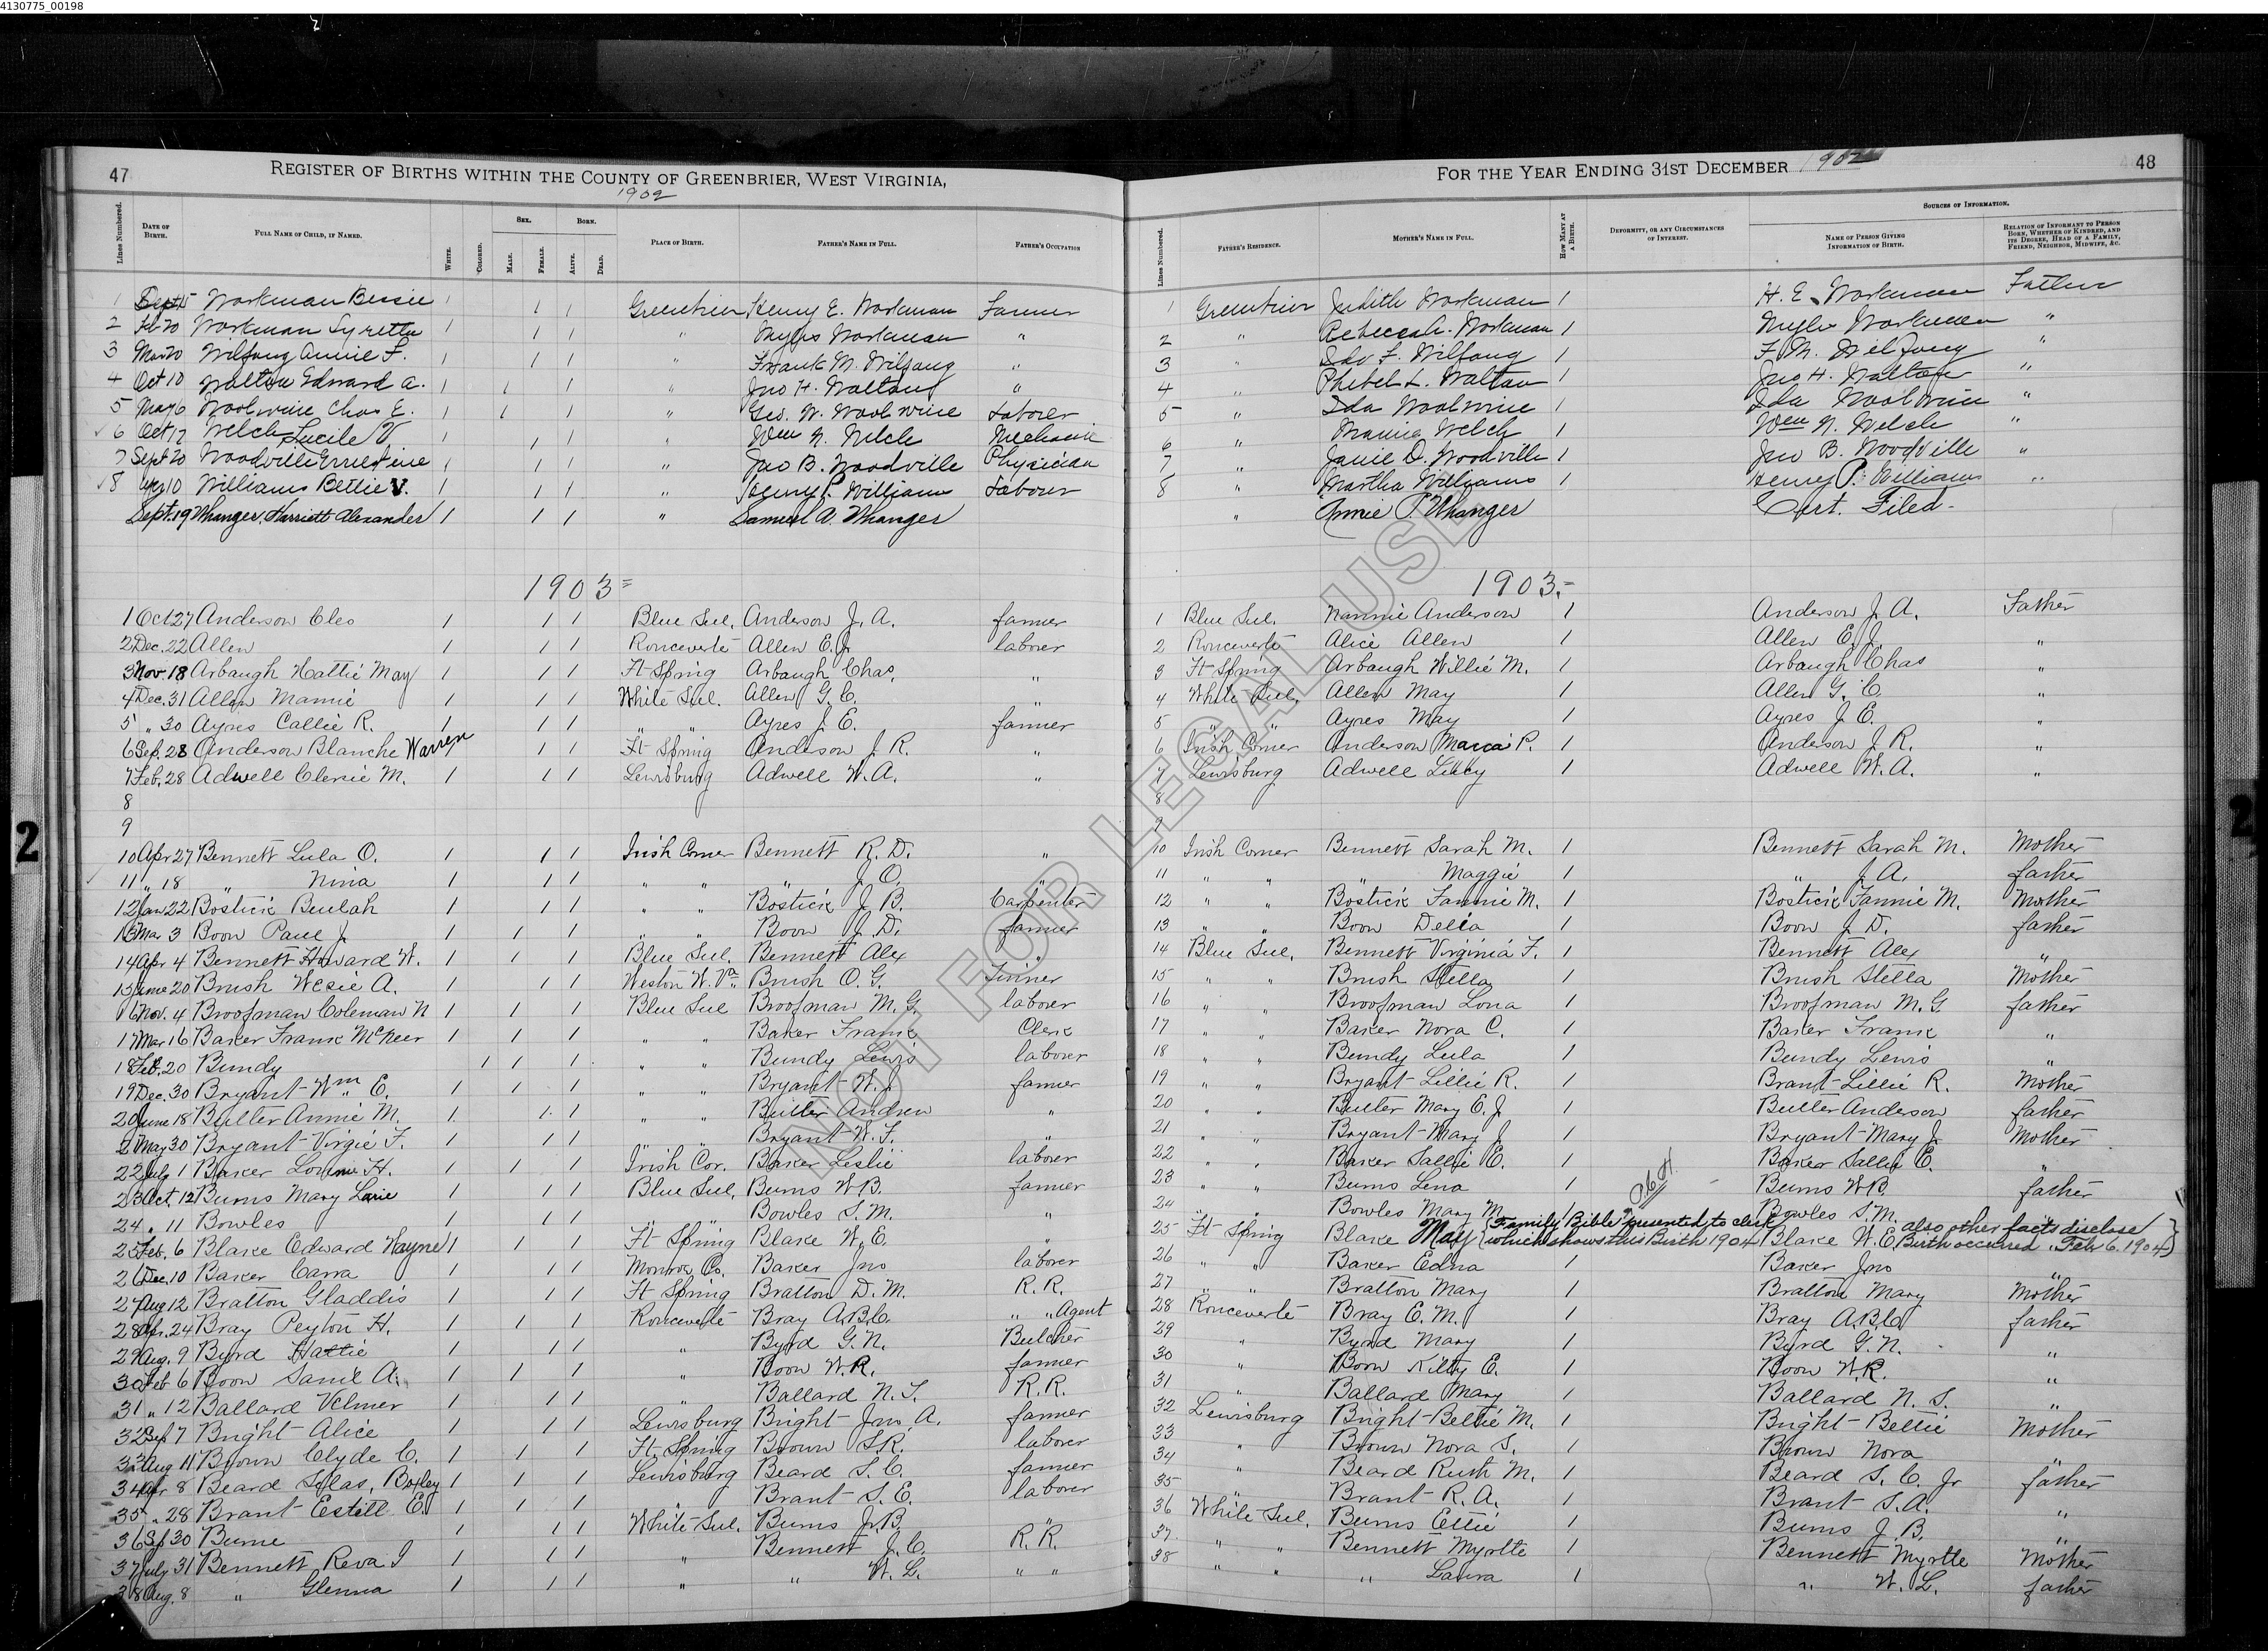 4130775_00198
47
REGISTER OF BIRTHS WITHIN THE COUNTY OF GREENBRIER, WEST VIRGINIA,
1902
FOR THE YEAR ENDING 31ST DECEMBER 1902
48
Lines Numbered. DATE OF BIRTH. FULL NAME OF CHILD, IF NAMED. WHITE. COLORED. SEX. MALE. FEMALE. BORN. ALIVE. DEAD. PLACE OF BIRTH. FATHER'S NAME IN FULL. FATHER'S OCCUPATION
Lines Numbered. FATHER'S RESIDENCE. MOTHER'S NAME IN FULL. HOW MANY AT A BIRTH. DEFORMITY, OR ANY CIRCUMSTANCES OF INTEREST. SOURCES OF INFORMATION. NAME OF PERSON GIVING INFORMATION OF BIRTH. RELATION OF INFORMANT TO PERSON BORN, WHETHER OF KINDRED, AND ITS DEGREE, HEAD OF A FAMILY, FRIEND, NEIGHBOR, MIDWIFE, &C.
1 Sept 15 Workman Bessie 1 1 1 Greenbrier Henry E. Workman Farmer 1 Greenbrier Judith Workman 1 H. E. Workman Father
2 Feb 20 Workman 1 1 1 " Workman " 2 " Rebecca A. Workman 1 Workman "
3 Mar 20 Wilfong Annie F. 1 1 1 " Frank M. Wilfong " 3 " Ida F. Wilfong 1 F. M. Wilfong "
4 Oct 10 Walton Edward A. 1 1 1 " Jno H. Walton " 4 " Phebe L. Walton 1 Jno H. Walton "
5 May 6 Woolwine Chas E. 1 1 1 " Geo. W. Woolwine Laborer 5 " Ida Woolwine 1 Ida Woolwine "
6 Oct 17 Welch Lucile V. 1 1 1 " Wm N. Welch Mechanic 6 " Welch 1 Wm N. Welch "
7 Sept 20 Woodville Ernestine 1 1 1 " Jno B. Woodville Physician 7 " Janie D. Woodville 1 Jno B. Woodville "
8 10 Williams Bettie V. 1 1 1 " Henry P. Williams Labourer 8 " Martha Williams 1 Henry P. Williams "
Sept. 19 Whanger, Harriett Alexander 1 1 1 " Samuel A. Whanger " Annie P. Whanger Cert. Filed-
1903= 1903.=
1 Oct 27 Anderson Cleo 1 1 1 Blue Sul. Anderson J. A. farmer 1 Blue Sul. Nannie Anderson 1 Anderson J. A. Father
2 Dec. 22 Allen 1 1 1 Ronceverte Allen E. J. laborer 2 Ronceverte Alice Allen 1 Allen E. J. "
3 Nov 18 Arbaugh Hattie May 1 1 1 Ft Spring Arbaugh Chas. " 3 Ft Spring Arbaugh Willie M. 1 Arbaugh Chas "
4 Dec. 31 Allen Mamie 1 1 1 White Sul. Allen G. C. " 4 White Sul. Allen May 1 Allen G. C. "
5 " 30 Ayres Callie R. 1 1 1 " " Ayres J. E. farmer 5 " " Ayres May 1 Ayres J. E. "
6 Sep. 28 Anderson Blanche Warren 1 1 Ft Spring Anderson J. R. " 6 Irish Corner Anderson P. 1 Anderson J. R. "
7 Feb. 28 Adwell Clenie M. 1 1 1 Lewisburg Adwell W. A. " 7 Lewisburg Adwell Libby 1 Adwell W. A. "
8 8
9 9
10 Apr 27 Bennett Lula O. 1 1 1 Irish Corner Bennett R. D. " 10 Irish Corner Bennett Sarah M. 1 Bennett Sarah M. Mother
11 " 18 " Nina 1 1 1 " " " J. O. " 11 " " " Maggie 1 " J. A. father
12 Jan 22 Bostick Beulah 1 1 1 " " Bostick J. B. Carpenter 12 " " Bostick Fannie M. 1 Bostick Fannie M. Mother
13 Mar 3 Boon Paul J 1 1 1 " " Boon J. D. farmer 13 " " Boon Delia 1 Boon J. D. father
14 Apr 4 Bennett Howard W. 1 1 1 Blue Sul. Bennett Alex " 14 Blue Sul. Bennett Virginia F. 1 Bennett Alex "
15 June 20 Brush Wesie A. 1 1 1 Weston W. Va. Brush O. G. Tinner 15 " " Brush Stella 1 Brush Stella Mother
16 Nov. 4 Broofman Coleman N 1 1 1 Blue Sul Broofman M. G. laborer 16 " " Broofman Lona 1 Broofman M. G father
17 Mar 16 Baker Frank McNeer 1 1 1 " " Baker Frank Clerk 17 " " Baker Nora C. 1 Baker Frank "
18 Feb. 20 Bundy 1 1 1 " " Bundy Lewis laborer 18 " " Bundy Lula 1 Bundy Lewis "
19 Dec. 30 Bryant Wm E. 1 1 1 " " Bryant W. J. farmer 19 " " Bryant Lillie R. 1 Brant Lillie R. Mother
20 June 18 Butler Annie M. 1 1 1 " " Butler Andrew " 20 " " Butler Mary E. J 1 Butler Anderson father
21 May 30 Bryant Virgie F. 1 1 1 " " Bryant W. F. " 21 " " Bryant Mary J 1 Bryant Mary J. Mother
22 July 1 Baker H. 1 1 1 Irish Cor. Baker Leslie laborer 22 " " Baker Sallie E. 1 Baker Sallie E. "
23 Oct. 12 Burns Mary Larie 1 1 1 Blue Sul. Burns W. B. farmer 23 " " Burns Lena 1 Burns W. B. father
24 " 11 Bowles 1 1 1 " " Bowles S. M. " 24 " " Bowles Mary M. 1 Bowles S. M. "
25 Feb. 6 Blake Edward Wayne 1 1 1 Ft Spring Blake W. E. " 25 Ft Spring Blake May {Family Bible presented to clerk which shows this Birth 1904 Blake W. E. also other facts disclose Birth occurred Feb 6. 1904}
26 Dec. 10 Baker Carra 1 1 1 Monroe Co. Baker Jno laborer 26 " " Baker Edna 1 Baker Jno "
27 Aug 12 Bratton Gladdis 1 1 1 Ft Spring Bratton D. M. R. R. 27 " " Bratton Mary 1 Bratton Mary Mother
28 Apr. 24 Bray Peyton H. 1 1 1 Ronceverte Bray A.B.C. " " Agent 28 Ronceverte Bray E. M. 1 Bray A.B.C father
29 Aug. 9 Byrd Hattie 1 1 1 " Byrd G. N. Butcher 29 " Byrd Mary 1 Byrd G. N. "
30 Feb 6 Boon Saml A. 1 1 1 " Boon W. R. farmer 30 " Boon Kitty E. 1 Boon W. R. "
31 " 12 Ballard Velmer 1 1 1 " Ballard N. S. R. R. 31 " Ballard Mary 1 Ballard N. S. "
32 Sep 7 Bright Alice 1 1 1 Lewisburg Bright Jno A. farmer 32 Lewisburg Bright Bettie M. 1 Bright Bettie Mother
33 Aug 11 Brown Clyde C. 1 1 1 Ft Spring Brown S.R. laborer 33 " Brown Nora S. 1 Brown Nora "
34 Apr 8 Beard Silas, Boxley 1 1 1 Lewisburg Beard S. C. farmer 34 " Beard Rush M. 1 Beard S. C. Jr father
35 " 28 Brant Estill E. 1 1 1 " Brant S. E. laborer 35 " Brant R. A. 1 Brant S. A. "
36 Sep 30 Burne 1 1 1 White Sul. Burns J. B. " 36 White Sul. Burns Ettie 1 Burns J. B. "
37 July 31 Bennett Reva I 1 1 1 " Bennett J. C. R. R. 37 " " Bennett Myrtle 1 Bennett Myrtle Mother
38 Aug. 8 " Glenna 1 1 1 " " W. L. " " 38 " " " Laura 1 " W. L. father
NOT FOR LEGAL USE
2
2